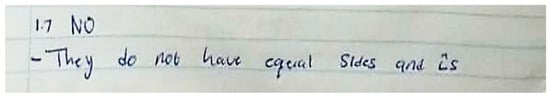 1.7 NO
- They do not have equal sides and Ês